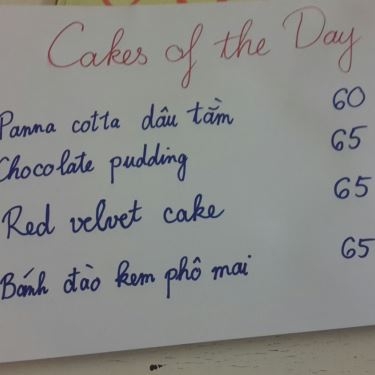 Cakes of the Day
Panna cotta dâu tằm 60
Chocolate pudding 65
Red velvet cake 65
Bánh đào kem phô mai 65